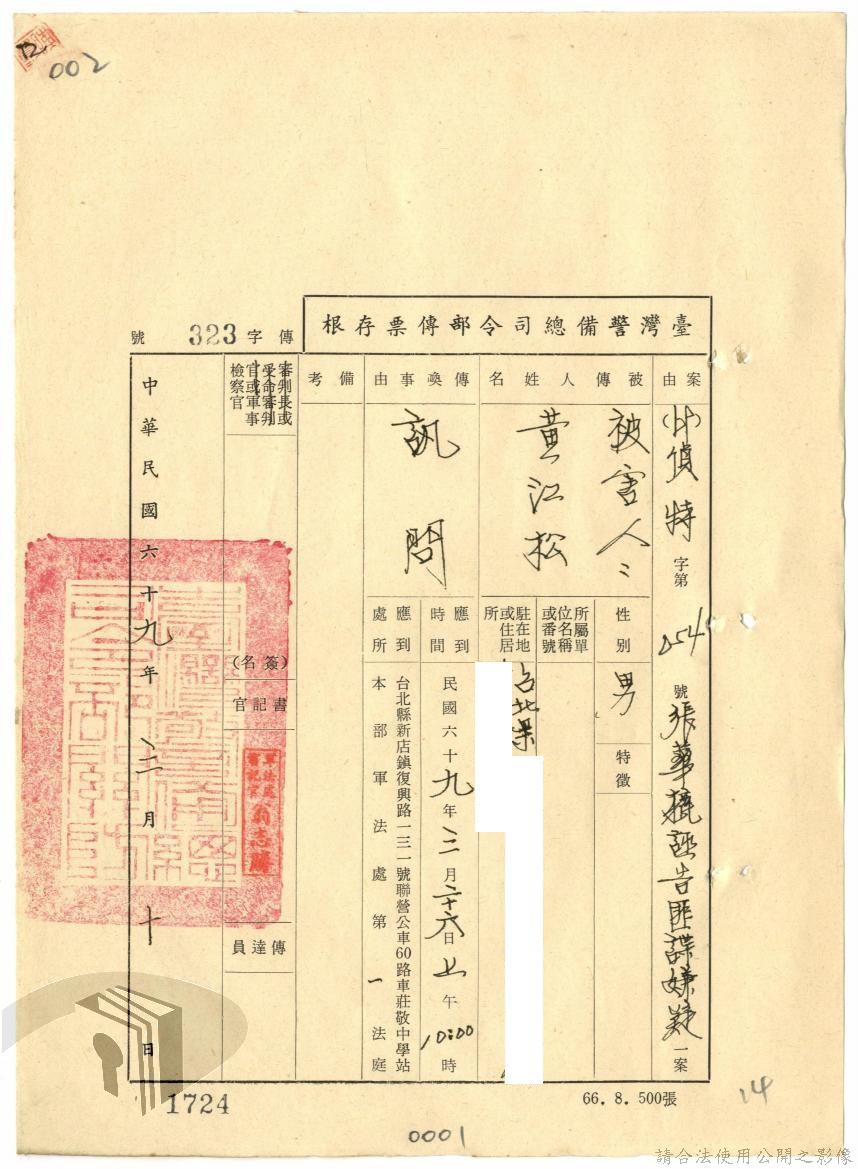 002
臺灣警備總司令部傳票存根
傳字 323 號
案由
偵特字第054號張華 誣告匪諜嫌疑一案
被傳人姓名
被害人
黃江松
性別
男
特徵
所屬單位名稱或番號
駐在地或住居所
台北縣
傳喚事由
訊問
應到時間
民國六十九年三月二十六日上午10:00時
應到處所
台北縣新店鎮復興路一三一號聯營公車60路車莊敬中學站
本部軍法處第一法庭
備考
審判長或受命審判官或軍事檢察官
(簽名)
書記官
傳達員
中華民國六十九年三月十日
1724
66.8.500張
14
0001
請合法使用公開之影像